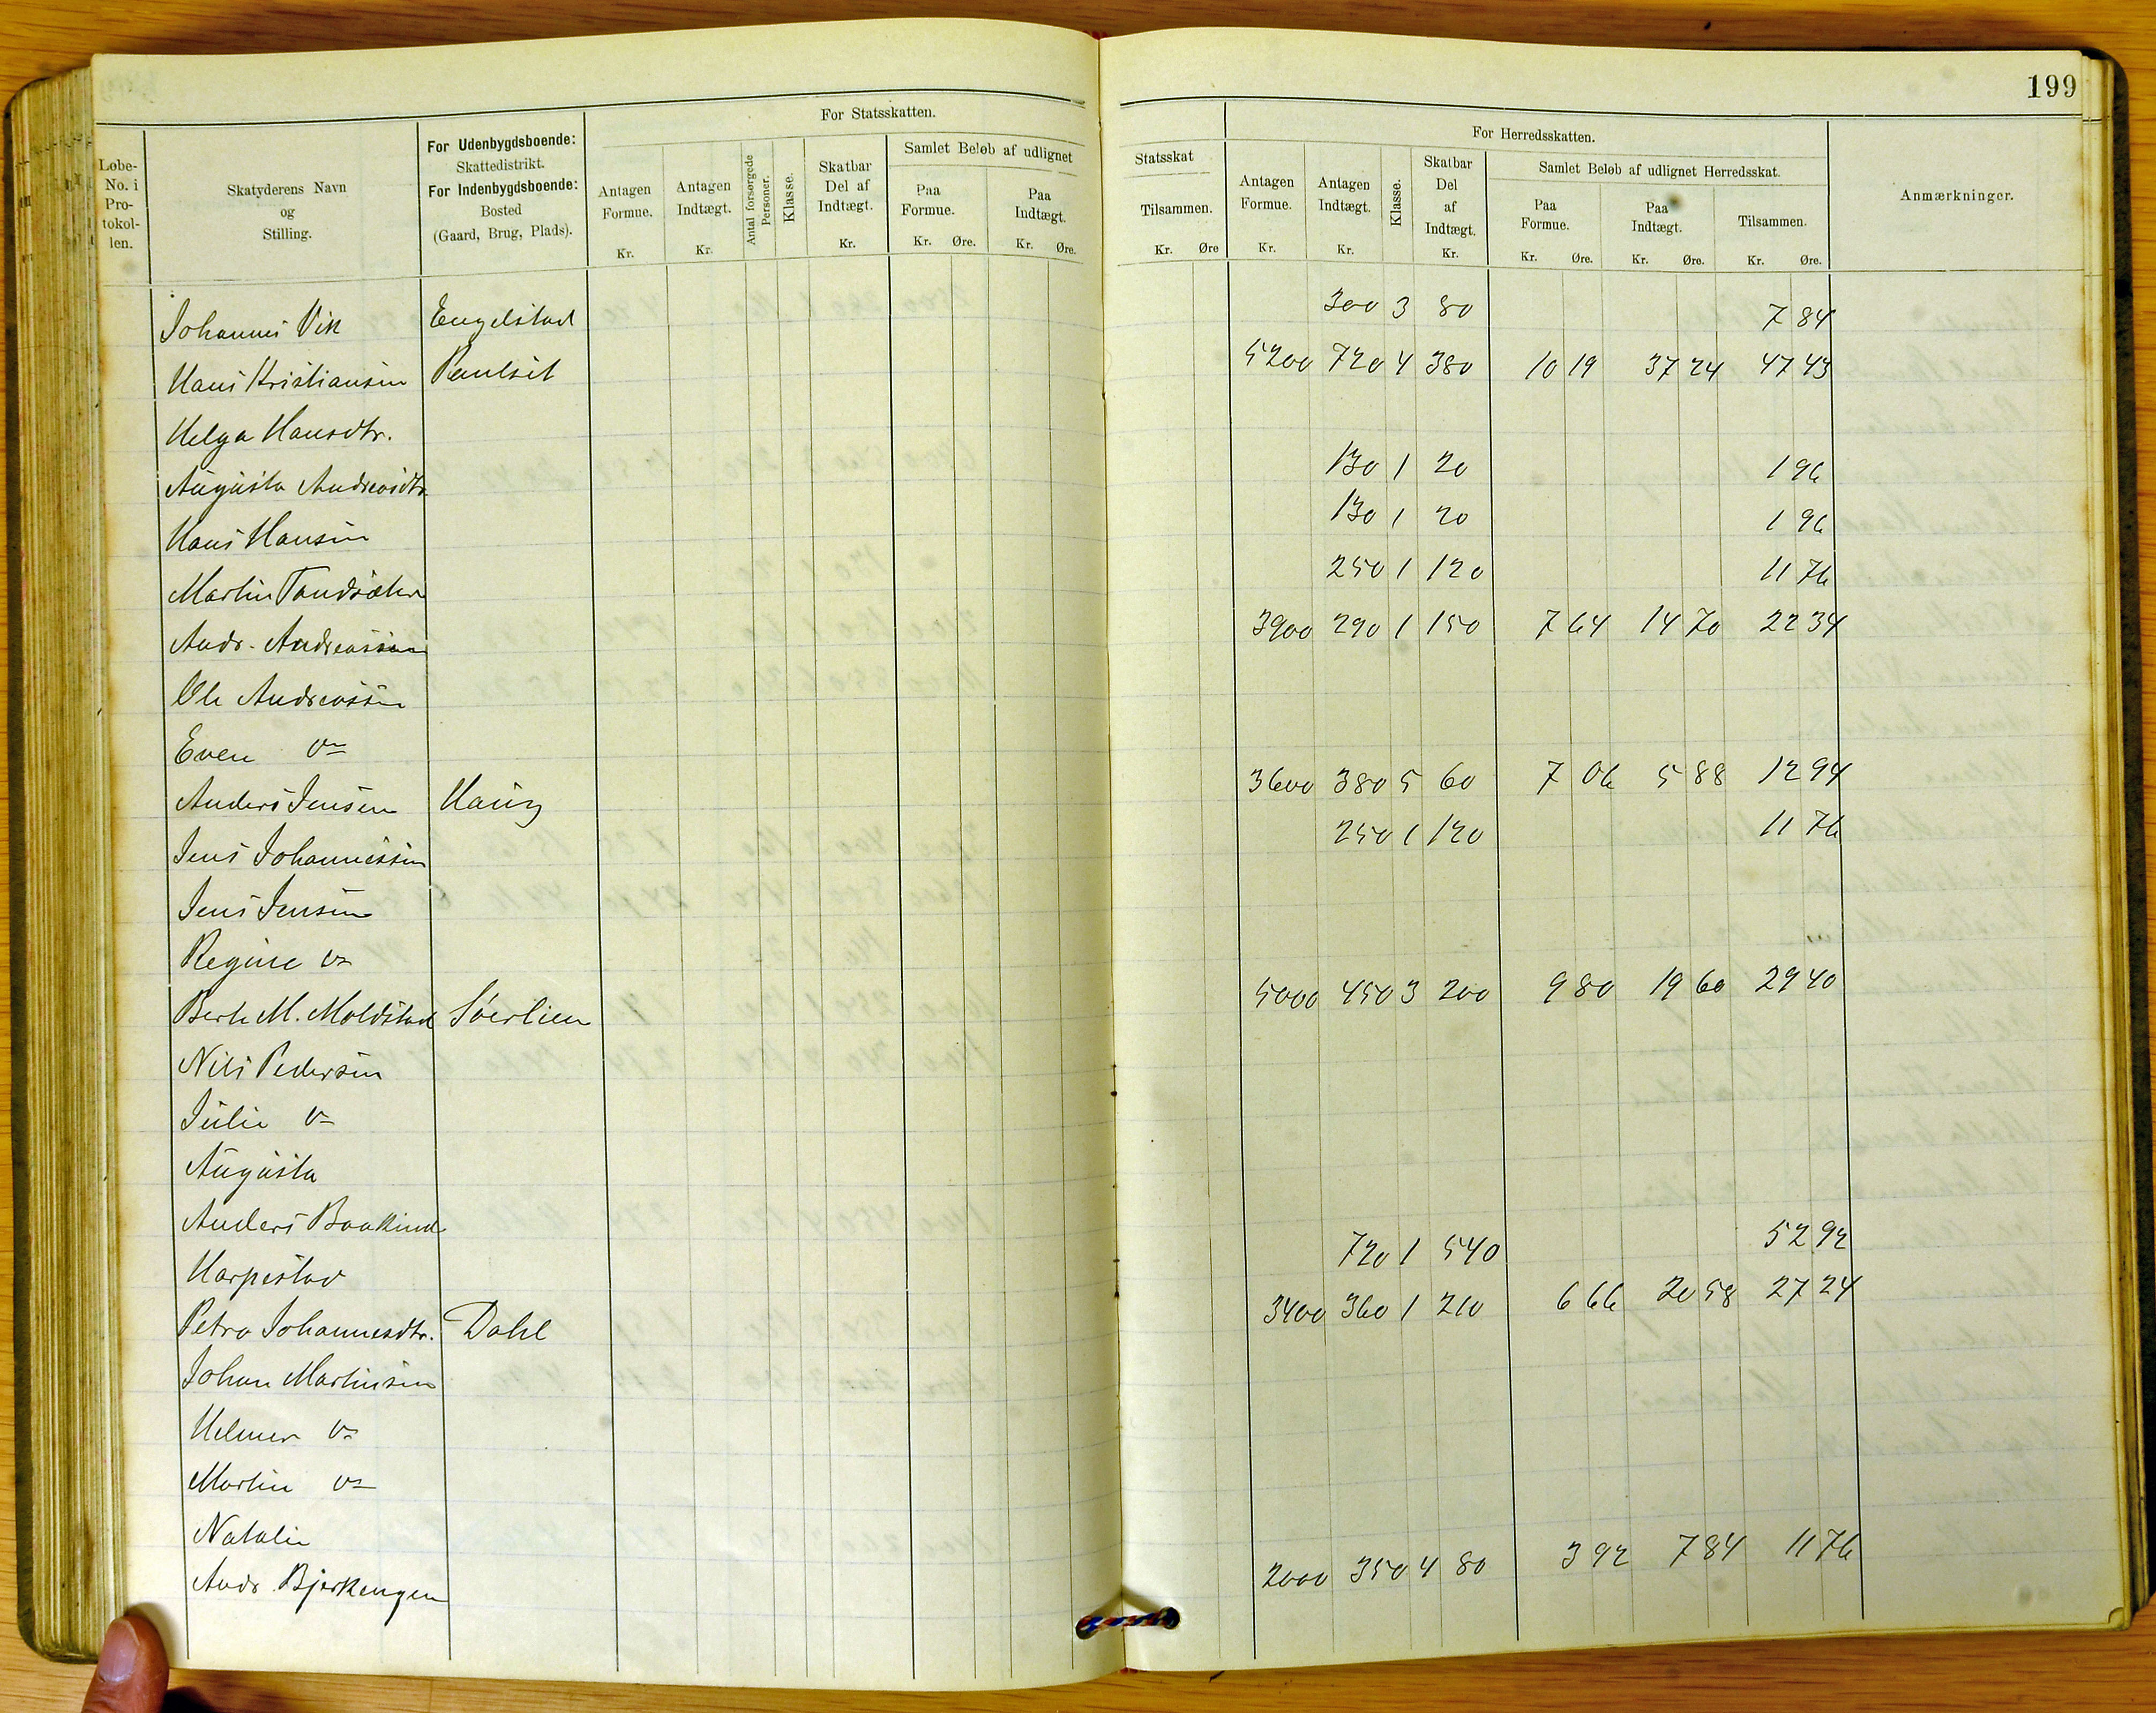 199
For Statsskatten.
For Herredsskatten.
Løbe-No. i Pro-tokol-len.
Skatyderens Navn og Stilling.
For Udenbygdsboende: Skattedistrikt. For Indenbygdsboende: Bosted (Gaard, Brug, Plads).
Antagen Formue. Kr.
Antagen Indtægt. Kr.
Antal forsørgede Personer.
Klasse.
Skatbar Del af Indtægt. Kr.
Samlet Beløb af udlignet
Paa Formue. Kr. Øre.
Paa Indtægt. Kr. Øre.
Statsskat
Tilsammen. Kr. Øre
Antagen Formue. Kr.
Antagen Indtægt. Kr.
Klasse.
Skatbar Del af Indtægt. Kr.
Samlet Beløb af udlignet Herredsskat.
Paa Formue. Kr. Øre.
Paa Indtægt. Kr. Øre.
Tilsammen. Kr. Øre.
Anmærkninger.
Johannes Vik Engelstad 300 3 80 7 84
Hans Kristiansen Paulseth 5200 720 4 380 10 19 37 24 47 43
Helga Hansdtr.
Augusta Andreasdtr 130 1 20 1 96
Hans Hansen 130 1 20 1 96
Martin Tandsæther 250 1 120 11 76
Andr. Andreassen 3900 290 1 150 7 64 14 70 22 34
Ole Andreassen
Even do
Anders Jensen Haug 3600 380 5 60 7 06 5 88 12 94
Jens Johannessen 250 1 120 11 76
Jens Jensen
Regine do
Berte M. Moldstad Søerlien 5000 450 3 200 9 80 19 60 29 40
Nils Pedersen
Julie do
Augusta
Anders
Harpestad 720 1 540 52 92
Petra Johannesdtr. Dahl 3400 360 1 210 6 66 20 58 27 24
Johan Martinsen
Helmer do
Martin do
Natalie
Andr. Bjerkengen 2000 350 4 80 3 92 7 84 11 76